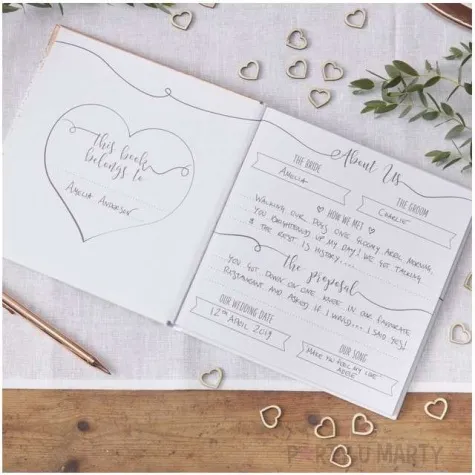 This book
belongs to
AMELIA ANDERSON
About Us
THE BRIDE
AMELIA
THE GROOM
CHARLIE
HOW WE MET
WALKING OUR DOGS ONE GLOOMY APRIL MORNING,
YOU BRIGHTENED UP MY DAY! WE GOT TALKING
& THE REST IS HISTORY...
the proposal
YOU GOT DOWN ON ONE KNEE IN OUR FAVOURITE
RESTAURANT AND ASKED IF I WOULD... I SAID YES!
OUR WEDDING DATE
12TH APRIL 2019
OUR SONG
MAKE YOU FEEL MY LOVE
ADELE
MARTY